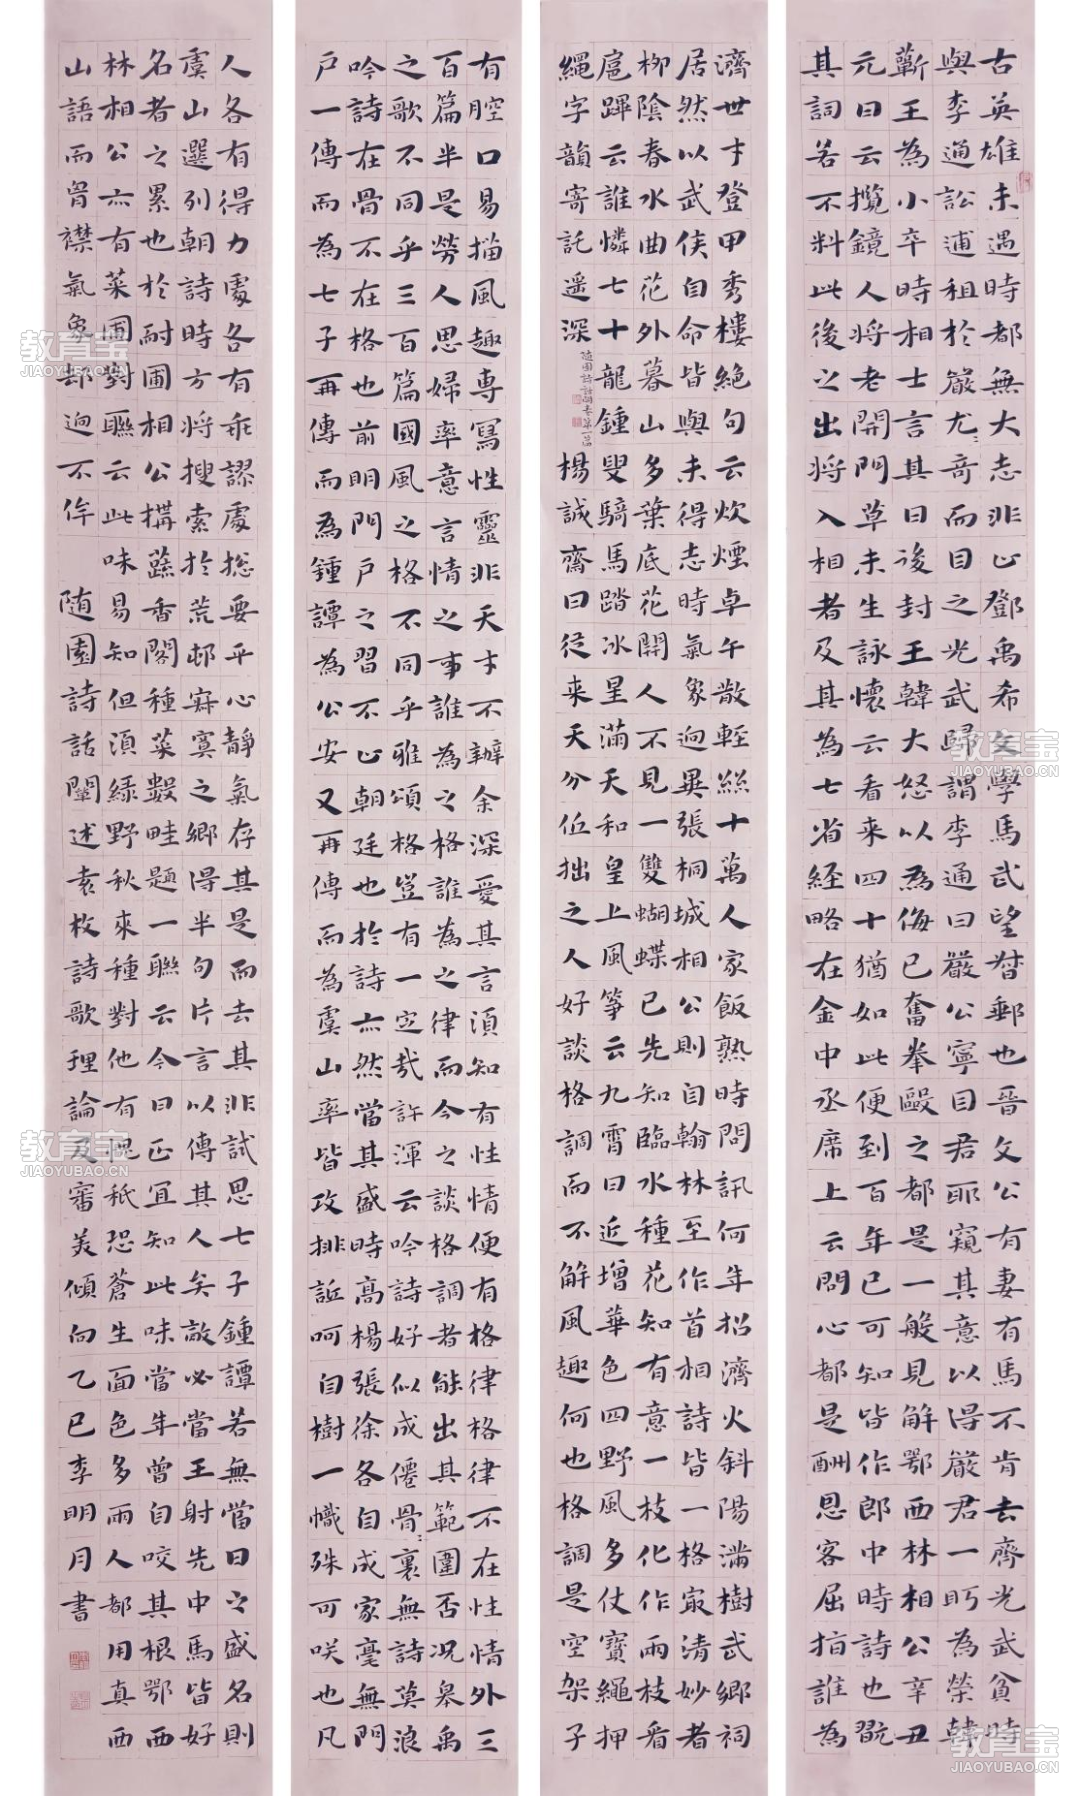 古英雄未遇時都無大志非止鄧禹希文學馬武望督郵也晉文公有妻有馬不肯去齊光武貧時
與李通訟逋租於嚴尤奇而目之光武歸謂李通曰嚴公寧目君耶窺其意以得嚴君一眄為榮韓
蘄王為小卒時相士言其日後封王韓大怒以為侮己奮拳毆之都是一般見解鄂西林相公辛丑
元日云攬鏡人將老開門草未生詠懷云看來四十猶如此便到百年已可知皆作郎中時詩也翫
其詞若不料此後之出將入相者及其為七省經略在金中丞席上云問心都是酬恩客屈指誰為
濟世才登甲秀樓絕句云炊煙卓午散輕絲十萬人家飯熟時問訊何年招濟火斜陽滿樹武鄉祠
居然以武侯自命皆與未得志時氣象迥異張桐城相公則自翰林至作首相詩皆一格最清妙者
柳陰春水曲花外暮山多葉底花開人不見一雙蝴蝶已先知臨水種花知有意一枝化作兩枝看
扈蹕云誰憐七十龍鍾叟騎馬踏冰星滿天和皇上風箏云九霄日近增華色四野風多仗寶繩押
繩字韻寄託遥深
隨園詩話
楊誠齋曰從來天分低拙之人好談格調而不解風趣何也格調是空架子
有腔口易描風趣專寫性靈非天才不辦余深愛其言須知有性情便有格律格律不在性情外三
百篇半是勞人思婦率意言情之事誰為之格誰為之律而今之談格調者能出其範圍否況皋禹
之歌不同乎三百篇國風之格不同乎雅頌格豈有一定哉許渾云吟詩好似成僊骨裏無詩莫浪
吟詩在骨不在格也前明門戶之習不止朝廷也於詩亦然當其盛時高楊張徐各自成家毫無門
戶一傳而為七子再傳而為鍾譚為公安又再傳而為虞山率皆攻排詆呵自樹一幟殊可咲也凡
人各有得力處各有乖謬處總要平心靜氣存其是而去其非試思七子鍾譚若無當日之盛名則
虞山選列朝詩時方將搜索於荒邨寂寞之鄉得半句片言以傳其人矣敵必當王射先中馬皆好
名者之累也於耐圃相公搆蔬香閣種菜數畦題一聯云今日正宜知此味當年曾自咬其根鄂西
林相公亦有菜圃對聯云此味易知但須綠野秋來種對他有愧秖恐蒼生面色多兩人都用真西
山語而胷襟氣象却迥不侔
隨園詩話闡述袁枚詩歌理論及審美傾向乙巳李明月書
教育宝
JIAOYUBAO.CN
教育宝
JIAOYUBAO.CN
教育宝
JIAOYUBAO.CN
教育宝
JIAOYUBAO.CN